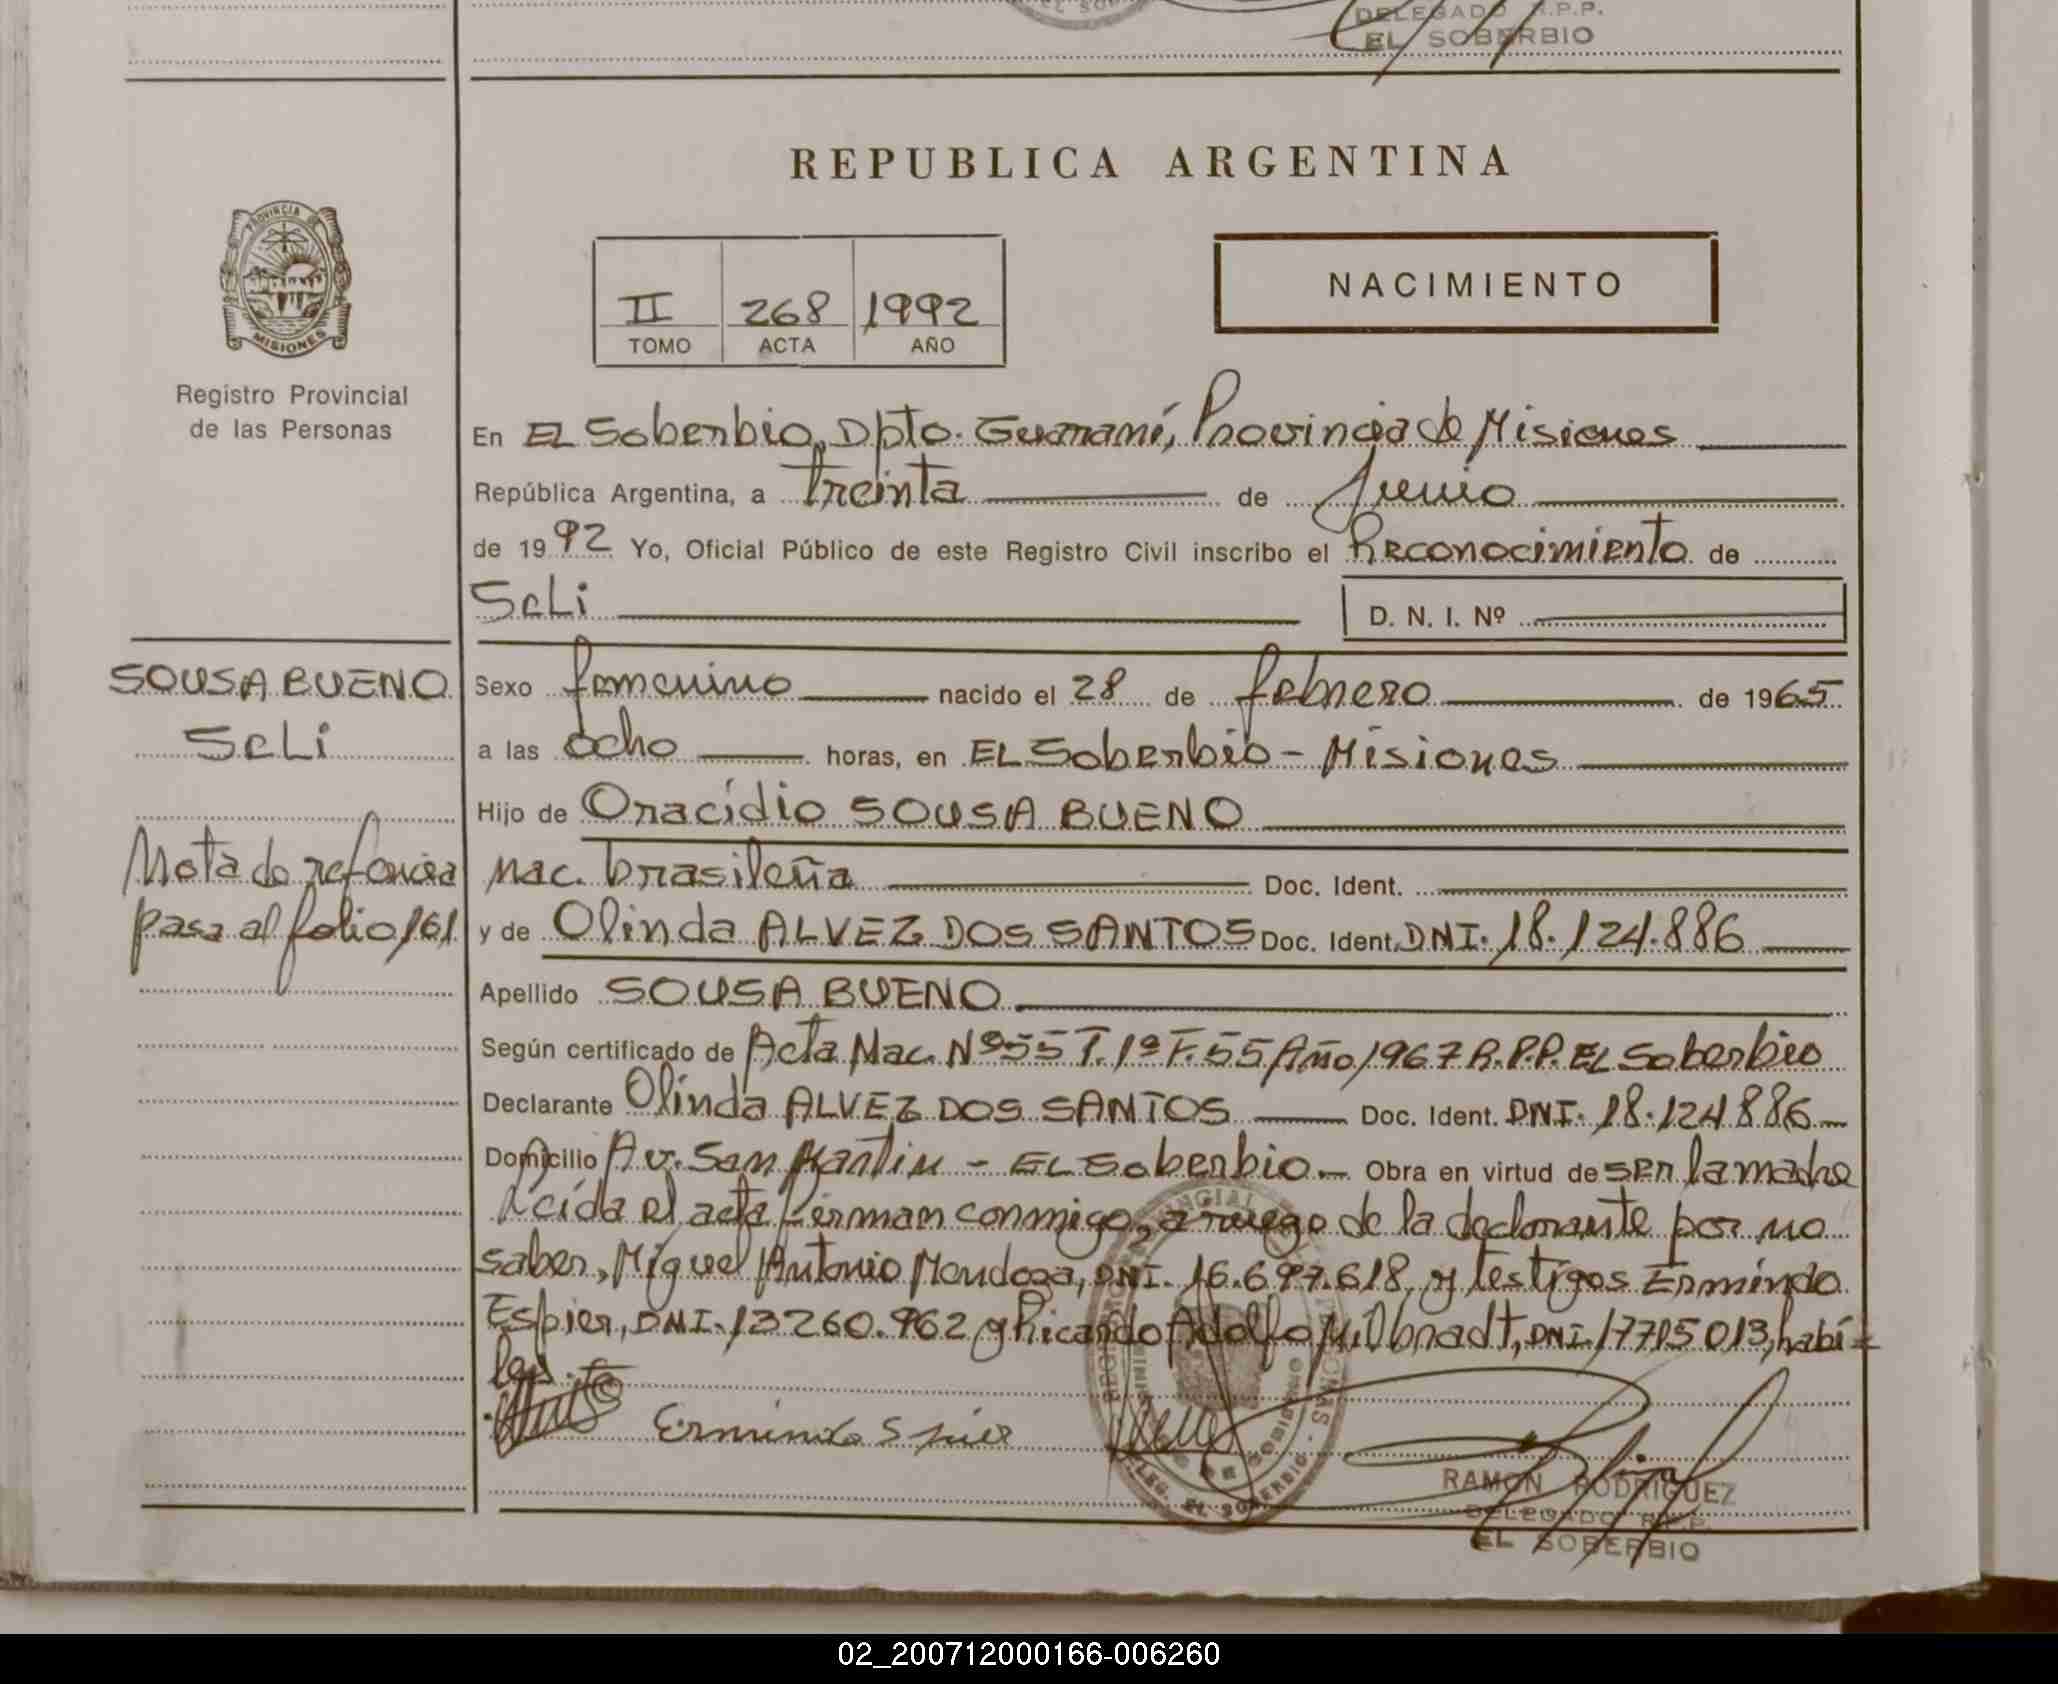 DELEGADO R.P.P.
EL SOBERBIO
REPUBLICA ARGENTINA
PROVINCIA DE
MISIONES
II 268 1992
TOMO ACTA AÑO
NACIMIENTO
Registro Provincial
de las Personas
En EL Soberbio, Dpto. Guaraní, Provincia de Misiones
República Argentina, a treinta de junio
de 1992 Yo, Oficial Público de este Registro Civil inscribo el Reconocimiento de
SeLi
D. N. I. Nº
SOUSA BUENO
SeLi
Nota de refencia
pasa al folio 161
Sexo femenino nacido el 28 de febrero de 1965
a las ocho horas, en EL Soberbio - Misiones
Hijo de Oracídio SOUSA BUENO
Nac. brasileña Doc. Ident.
y de Olinda ALVEZ DOS SANTOS Doc. Ident. DNI. 18.124.886
Apellido SOUSA BUENO
Según certificado de Acta Nac. Nº 55 T. 1º F. 55 Año 1967 R.P.P. EL Soberbio
Declarante Olinda ALVEZ DOS SANTOS Doc. Ident. DNI. 18.124.886
Domicilio Av. San Martin - EL Soberbio. Obra en virtud de ser la madre
Leída el acta firman conmigo, a ruego de la declarante por no
saber, Miguel Antonio Mendoza, DNI. 16.697.618, y testigos Ermindo
Espier, DNI. 13260.962 y Ricardo Adolfo Milbradt, DNI. 17715013, habi-
les.
Ermindo Spier
DELEG. EL SOBERBIO
RAMON RODRIGUEZ
DELEGADO R.P.P.
EL SOBERBIO
02_200712000166-006260